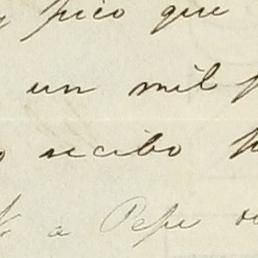 y pico que
un mil
recibo
a Pepe